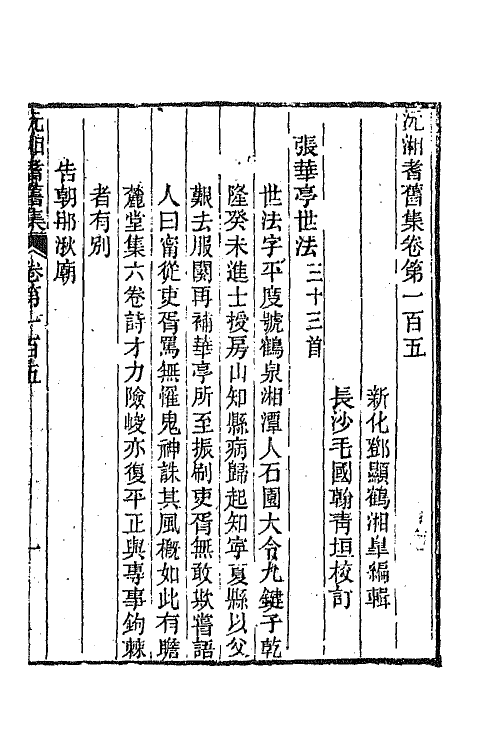 沅湘耆舊集卷第一百五
新化鄧顯鶴湘臯編輯
長沙毛國翰靑垣校訂
張華亭世法三十三首
世法字平度號鶴泉湘潭人石園大令九鍵子乾
隆癸未進士授房山知縣病歸起知寧夏縣以父
艱去服闋再補華亭所至振刷吏胥無敢欺嘗語
人曰甯從吏胥罵無惟鬼神誅其風槪如此有瞻
麓堂集六卷詩才力險峻亦復平正與專事鉤棘
者有別
告朝那湫廟
沅湘耆舊集
卷第一百五
一